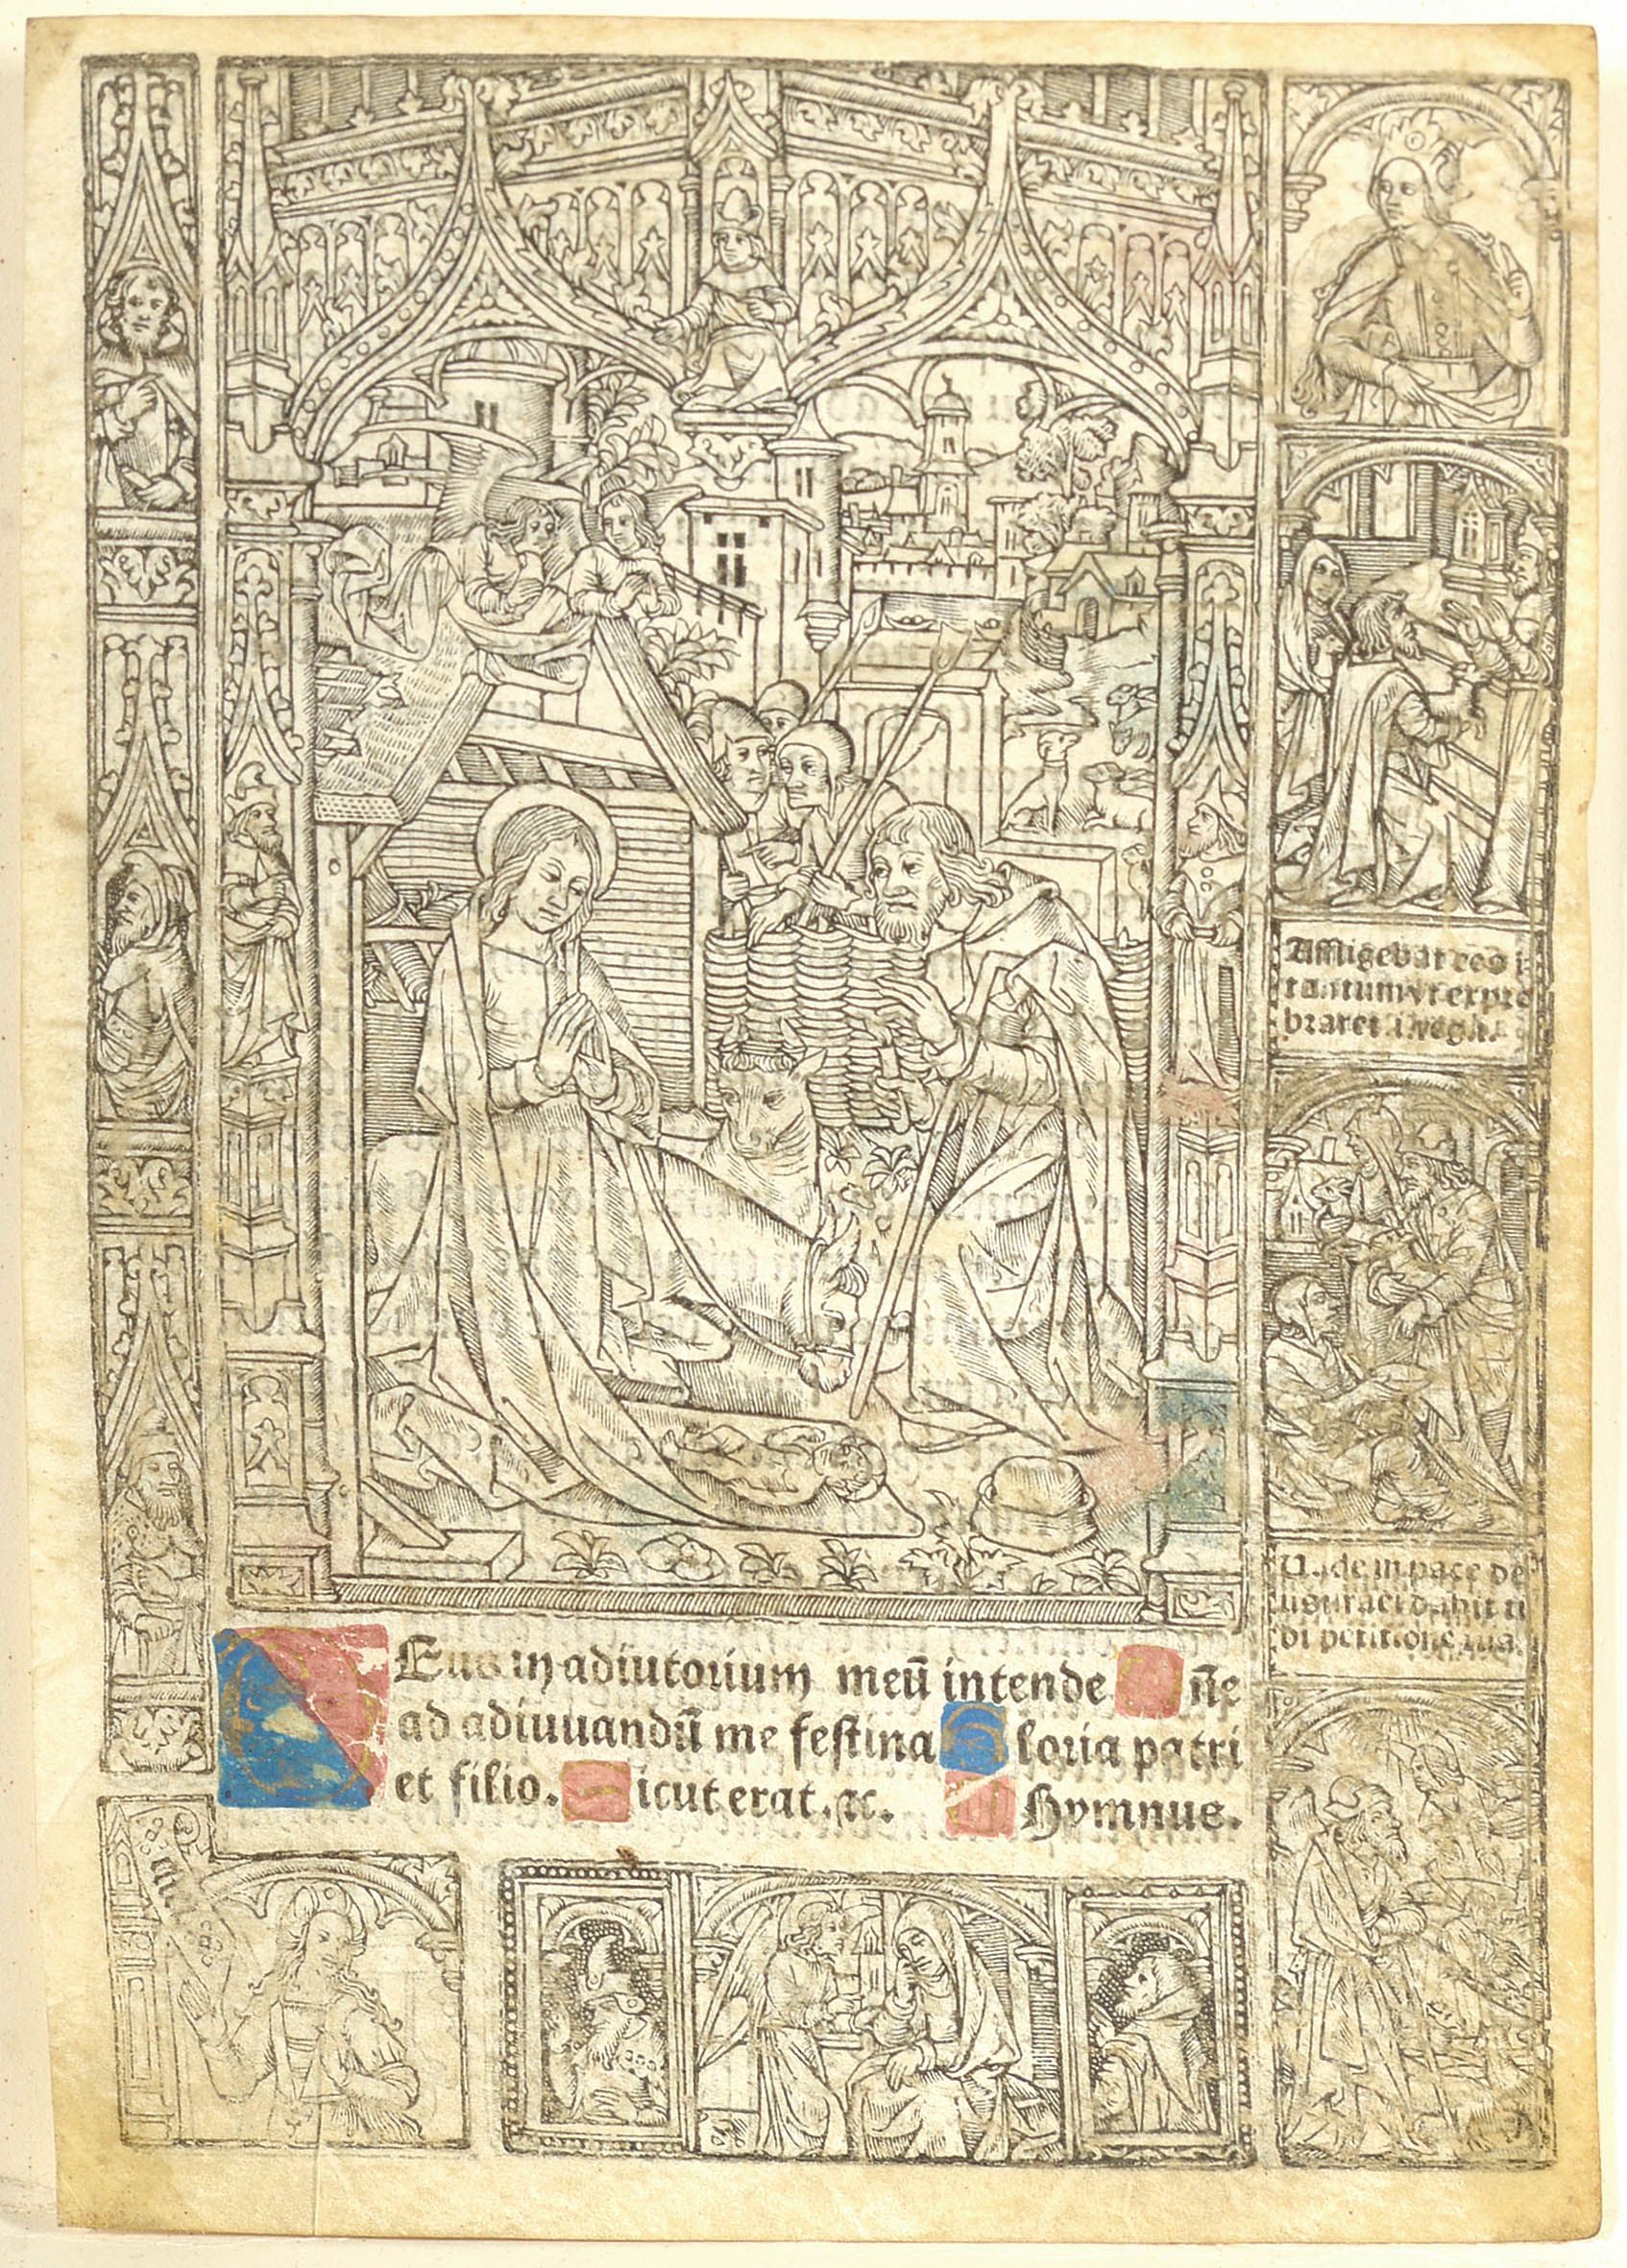 Affligebat eos i
tantum vt expro
braret
U.ide in pace de
bi petitione tua.
Eus in adiutorium meū intende Dn̄e
ad adiuuandū me festina Gloria patri
et filio. Sicut erat. ⁊c. Hymnus.